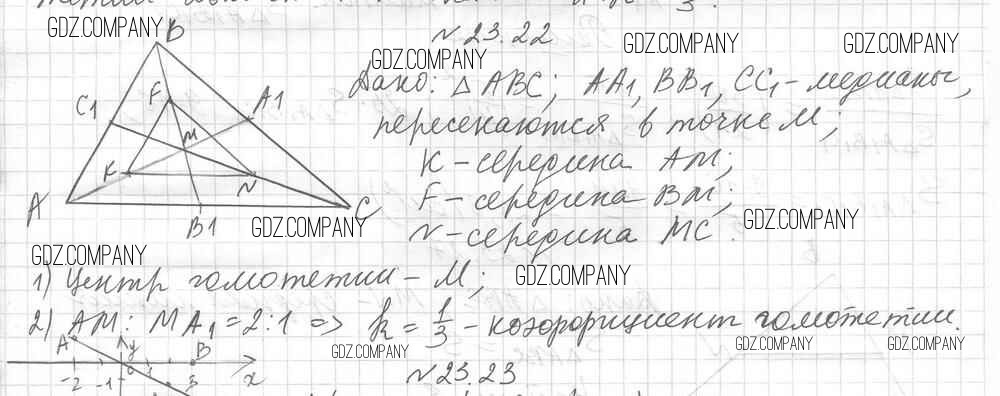 GDZ.COMPANY
N 23.22
GDZ.COMPANY GDZ.COMPANY GDZ.COMPANY
Дано: △ ABC; AA1, BB1, CC1 - медианы,
пересекаются в точке M;
K - середина AM;
F - середина BM;
N - середина MC.
B
C1 F A1
M
K N
A B1 C
GDZ.COMPANY GDZ.COMPANY
GDZ.COMPANY GDZ.COMPANY
1) Центр гомотетии - M;
2) AM : MA1 = 2:1 => k = 1/3 - коэффициент гомотетии.
GDZ.COMPANY GDZ.COMPANY GDZ.COMPANY
A y B
-2 -1 0 1 3 x
N 23.23